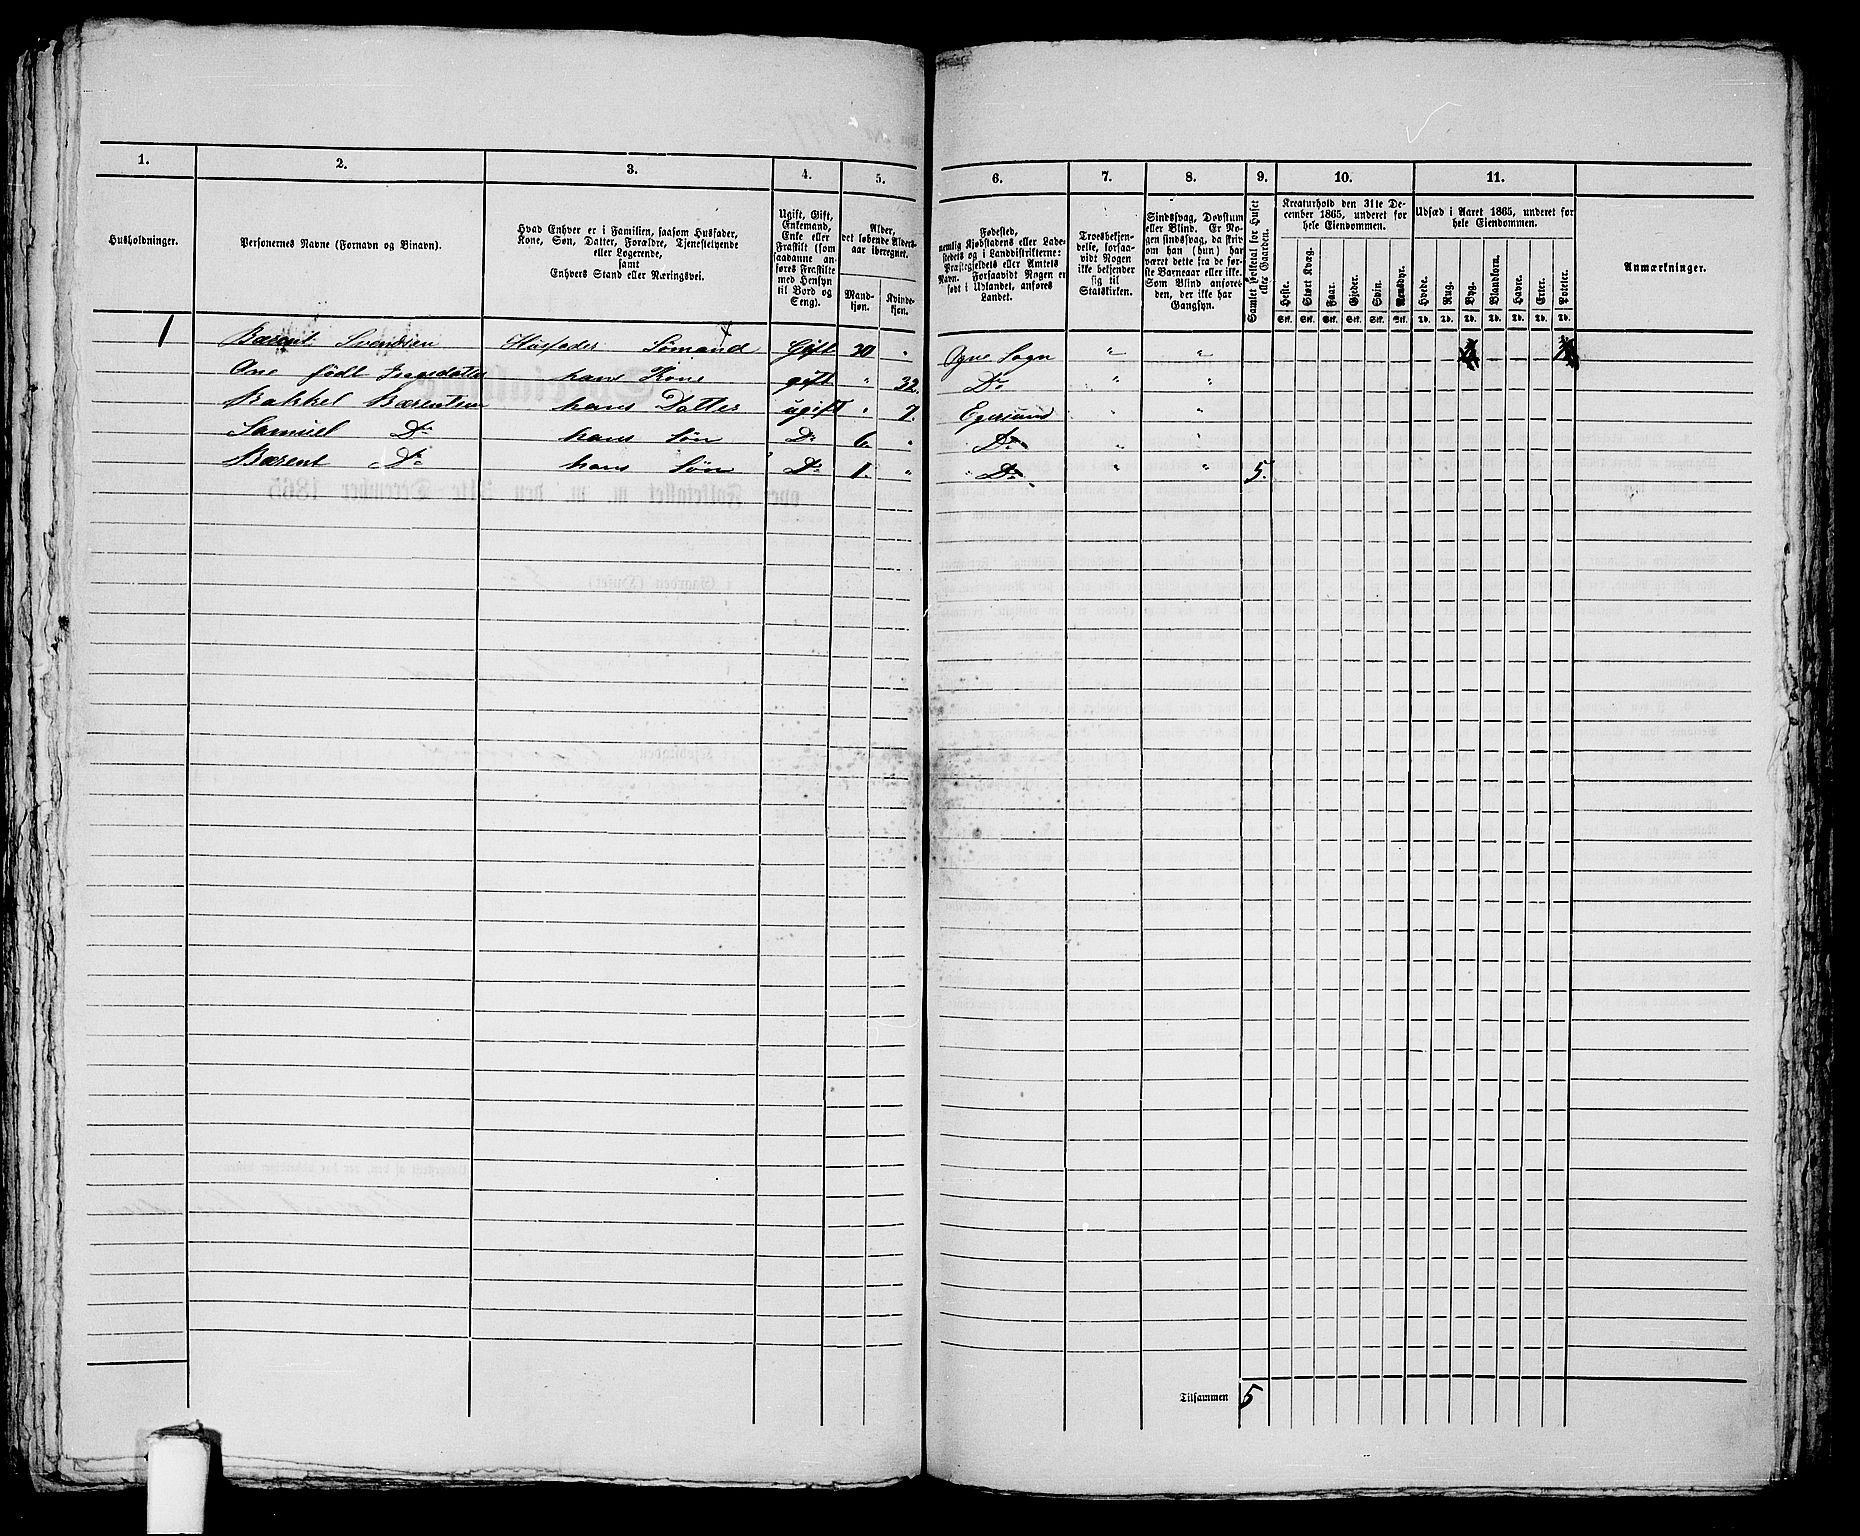 1. 2. 3. 4. 5. 6. 7. 8. 9. 10. 11.
Husholdninger.
Personernes Navne (Fornavn og Binavn).
Hvad Enhver er i Familien, saasom Husfader,
Kone, Søn, Datter, Forældre, Tjenestetyende
eller Logerende,
samt
Enhvers Stand eller Næringsvei.
Ugift, Gift,
Enkemand,
Enke eller
Fraskilt (som
saadanne an-
føres Fraskilte
med Hensyn
til Bord og
Seng).
Alder,
det løbende Alders-
aar iberegnet.
Mand-
kjøn.
Kvinde-
kjøn.
Fødested,
nemlig Kjøbstadens eller Lade-
stedets og i Landdistrikterne:
Præstegjeldets eller Amtets
Navn. Forsaavidt Nogen er
født i Udlandet, anføres
Landet.
Troesbekjen-
delse, forsaa-
vidt Nogen
ikke bekjender
sig til
Statskirken.
Sindssvag, Døvstum
eller Blind. Er No-
gen sindssvag, da skriv
om han (hun) har
været dette fra de før-
ste Barneaar eller ikke.
Som Blind anføres
den, der ikke har
Gangsyn.
Samlet Folketal for Huset
eller Gaarden.
Kreaturhold den 31te De-
cember 1865, underet for
hele Eiendommen.
Heste. Stort Kvæg. Faar. Gjeder. Sviin. Rensdyr.
Stk. Stk. Stk. Stk. Stk. Stk.
Udsæd i Aaret 1865, underet for
hele Eiendommen.
Hvede. Rug. Byg. Blandkorn. Havre. Erter. Poteter.
Td. Td. Td. Td. Td. Td. Td.
Anmærkninger.
1 Bærent Svendsen Husfader Sømand Gift 30 " Ogne Sogn " "
Ane født hans Kone gift " 32. Do " "
Rakkel Bærentsen hans Datter ugift " 7. Egersund " "
Samuel Do hans Søn Do 6. " Do " "
Bærent Do hans Søn Do 1. " Do " " 5.
Tilsammen 5